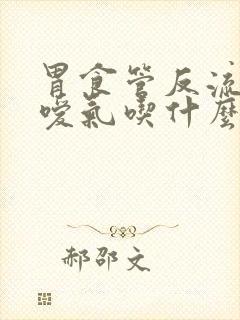 胃食管反流
噯氣喫什麼
郝邵文